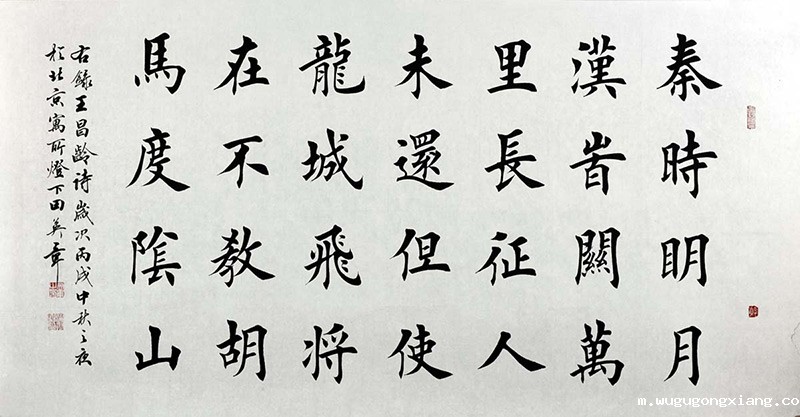 秦時明月
漢旹關萬
里長征人
未還但使
龍城飛将
在不教胡
馬度陰山
右錄王昌齡詩歲次丙戌中秋之夜
於北京寓所燈下田英章
m.wugugongxiang.co